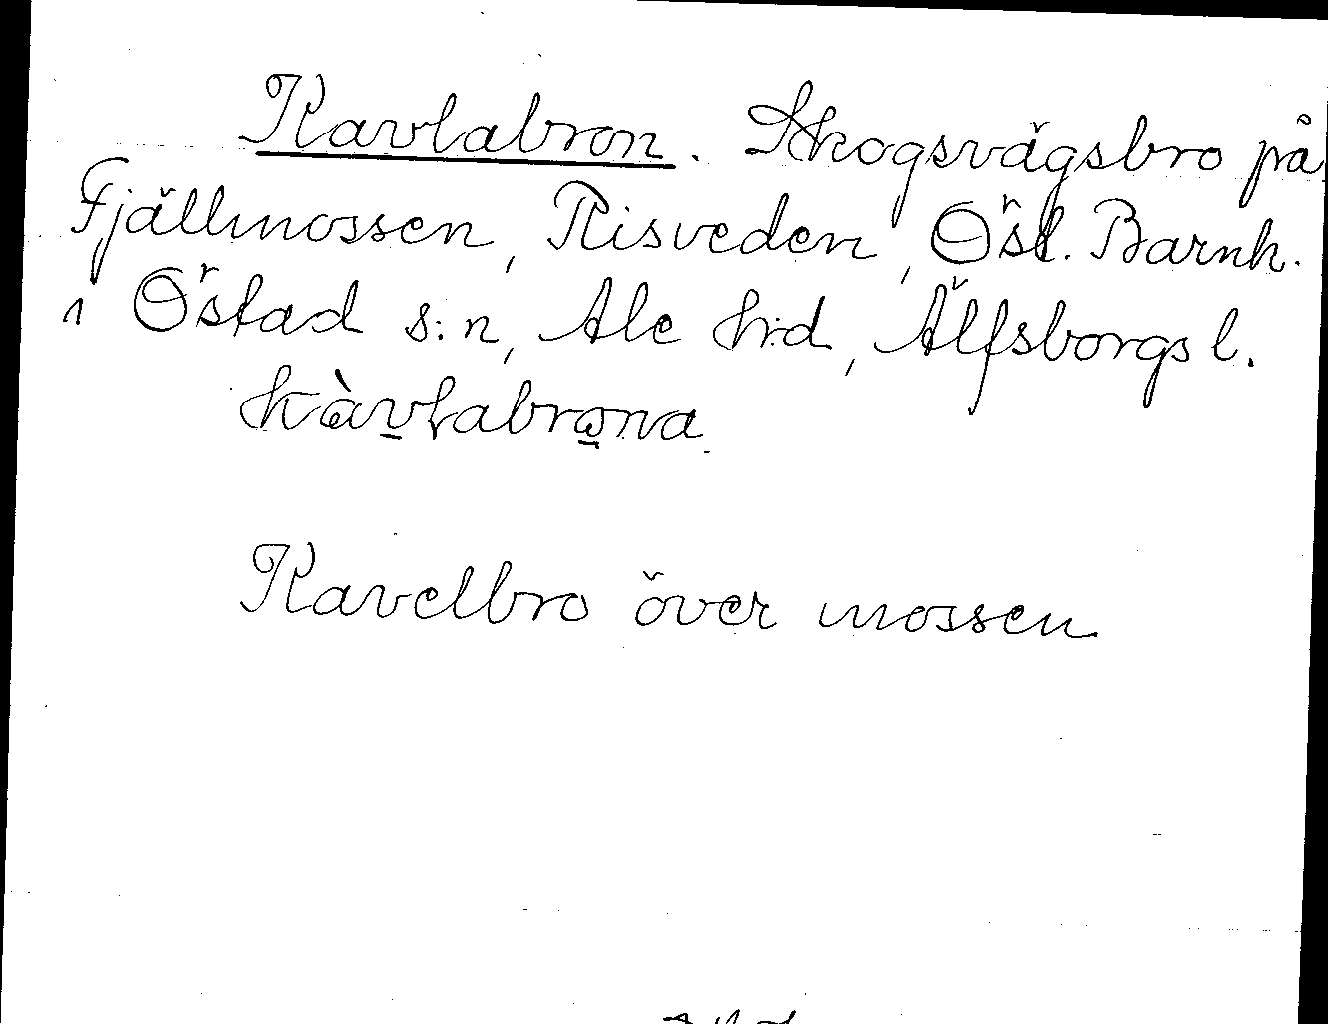 Kavlabron. Skogsvägsbro på
Fjällmossen, Risveden, Östl. Barnh.
i Östad s:n, Ale h:d, Älfsborgs l.
kàvlabrona
Kavelbro över mossen